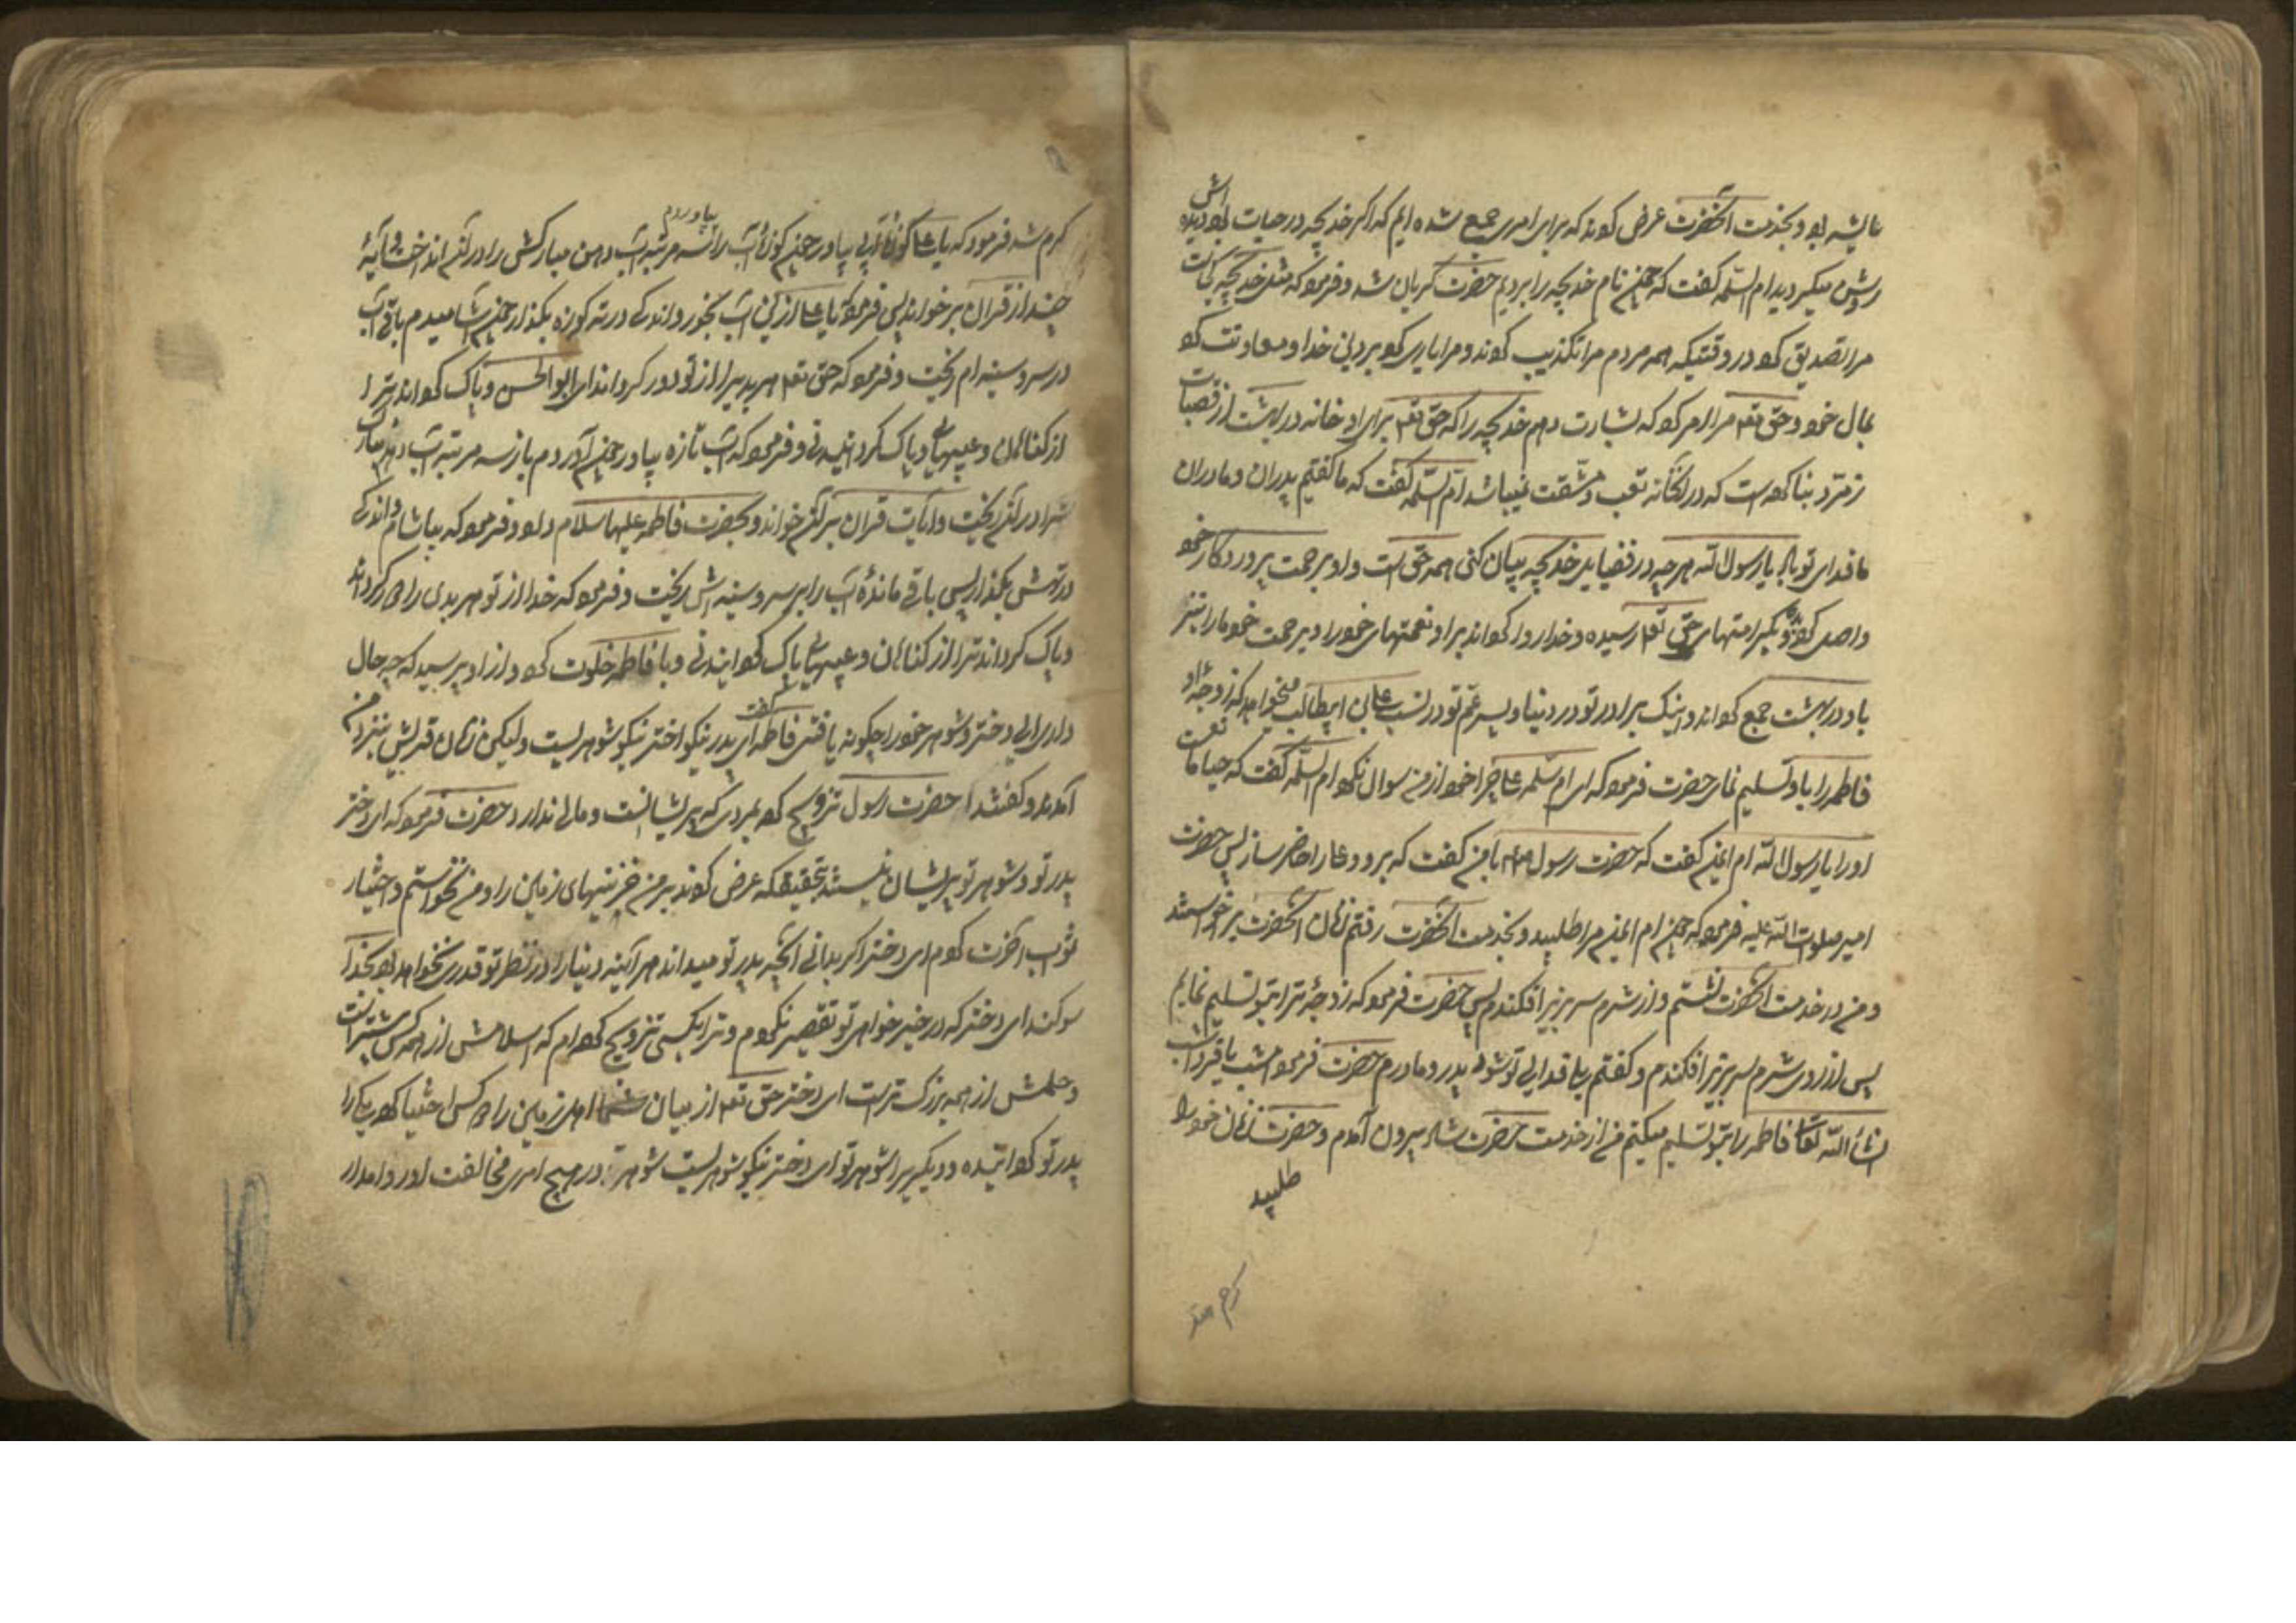 عایشه بود و بخدمت آنحضرت عرض کردند که برای امری جمع شده ایم که اکر خدیجه در حیات بود دیده اش
روشن میکردید ام السلمه کفت که چون نام خدیجه را بردیم حضرت کریان شد و فرمود که مثل خدیجه کجاست
مرا تصدیق کرد در وقتیکه همه مردم مرا تکذیب کردند و مرا یاری کرد بر دین خدا و معاونت کرد
بمال خود و حق تعالی مرا امر کرد که بشارت دهم خدیجه را که حق تعالی برای او خانه در بهشت از قصبات
زمرد بنا کرده است که در آنخانه تعب و مشقت نمیباشد ام السلمه کفت که ما کفتیم پدران و مادران
ما فدای تو باد یا رسول الله هر چه در فضایل خدیجه بیان کنی همه حق است و او برحمت پروردکار خود
واصل کردیده و بکرامتهای حق تعالی رسیده و خدا روا کرداند بر او نعمتهای خود را و برحمت خود ما را نیز
با او در بهشت جمع کرداند و اینک برادر تو در دنیا و پسر عم تو در نسب علی بن ابیطالب میخواهد که زوجه او
فاطمه را باو تسلیم نمای حضرت فرمود که ای ام سلمه علی چرا خود از من سوال نکرد ام السلمه کفت که حیا مانعست
او را یا رسول الله ام ایمن کفت که حضرت رسول با من کفت که برو و علی را حاضر ساز پس حضرت
امیر صلوات الله علیه فرمود که چون ام ایمن مرا طلبید و بخدمت آنحضرت رفتم زنان آنحضرت برخواستند
و من در خدمت آنحضرت نشستم و از شرم سر بزیر افکندم پس حضرت فرمود که زوجهٔ ترا بتو تسلیم نمایم
پس از روی شرم سر بزیر افکندم و کفتم بلی فدای تو شود پدر و مادرم حضرت فرمود امشب یا فردا شب
انشاء الله تعالی فاطمه را بتو تسلیم میکنم من از خدمت حضرت شاد بیرون آمدم و حضرت زنان خود را
طلبید
کرم شد فرمود که یا علی کوزهٔ آبی بیاور چون کوزهٔ آب را بیاوردم سه مرتبه آب دهن مبارکش را در آن انداخت و آیهٔ
چند از قرآن بر خواند پس فرمود یا علی از این آب بخور و اندکی در ته کوزه بکذار چون آشامیدم باقی آب
در سر و سینه ام ریخت و فرمود که حق تعالی هر بدیرا از تو دور کرداند ای ابوالحسن و پاک کرداند ترا
از کناهان و عیبها و پاک کردانیدنی و فرمود که آب تازه بیاور چون آوردم باز سه مرتبه آب دهن مبارک
خود را در آن ریخت و آیات قرآن بر آن خواند و بحضرت فاطمه علیها سلام داد و فرمود که بیاشام و اندکی
در تهش بکذار پس باقی ماندهٔ آب را بر سر و سینه اش ریخت و فرمود که خدا از تو هر بدی را دور کرداند
و پاک کرداند ترا از کناهان و عیبها پاک کردانیدنی و با فاطمه خلوت کرد و از او پرسید که چه حال
داری ای دختر و شوهر خود را چکونه یافتی فاطمه کفت ای پدر نیکو اختر نیکو شوهریست ولیکن زنان قریش بنزد من
آمدند و کفتند حضرت رسول تزویج کرد بمردی که پریشانست و مالی ندارد حضرت فرمود که ای دختر
پدر تو و شوهر تو پریشان نیستند بتحقیقکه عرض کردند بر من خزینیهای زمین را و من نخواستم و اختیار
ثواب آخرت کردم ای دختر اکر بدانی آنچه پدر تو میداند هر آینه دنیا را در نظر تو قدری نخواهد بود بخدا
سوکند ای دختر که در خیر خواهی تو تقصیر نکردم و ترا بکسی تزویج کرده ام که اسلامش از همه کس بیشتر است
و حلمش از همه بزرک تر است ای دختر حق تعالی از میان اهل زمین را دو کس اختیار کرد یکی را
پدر تو کردانیده و دیکریرا شوهر تو ای دختر نیکو شوهریست شوهر تو در هیچ امری مخالفت او روا مدار